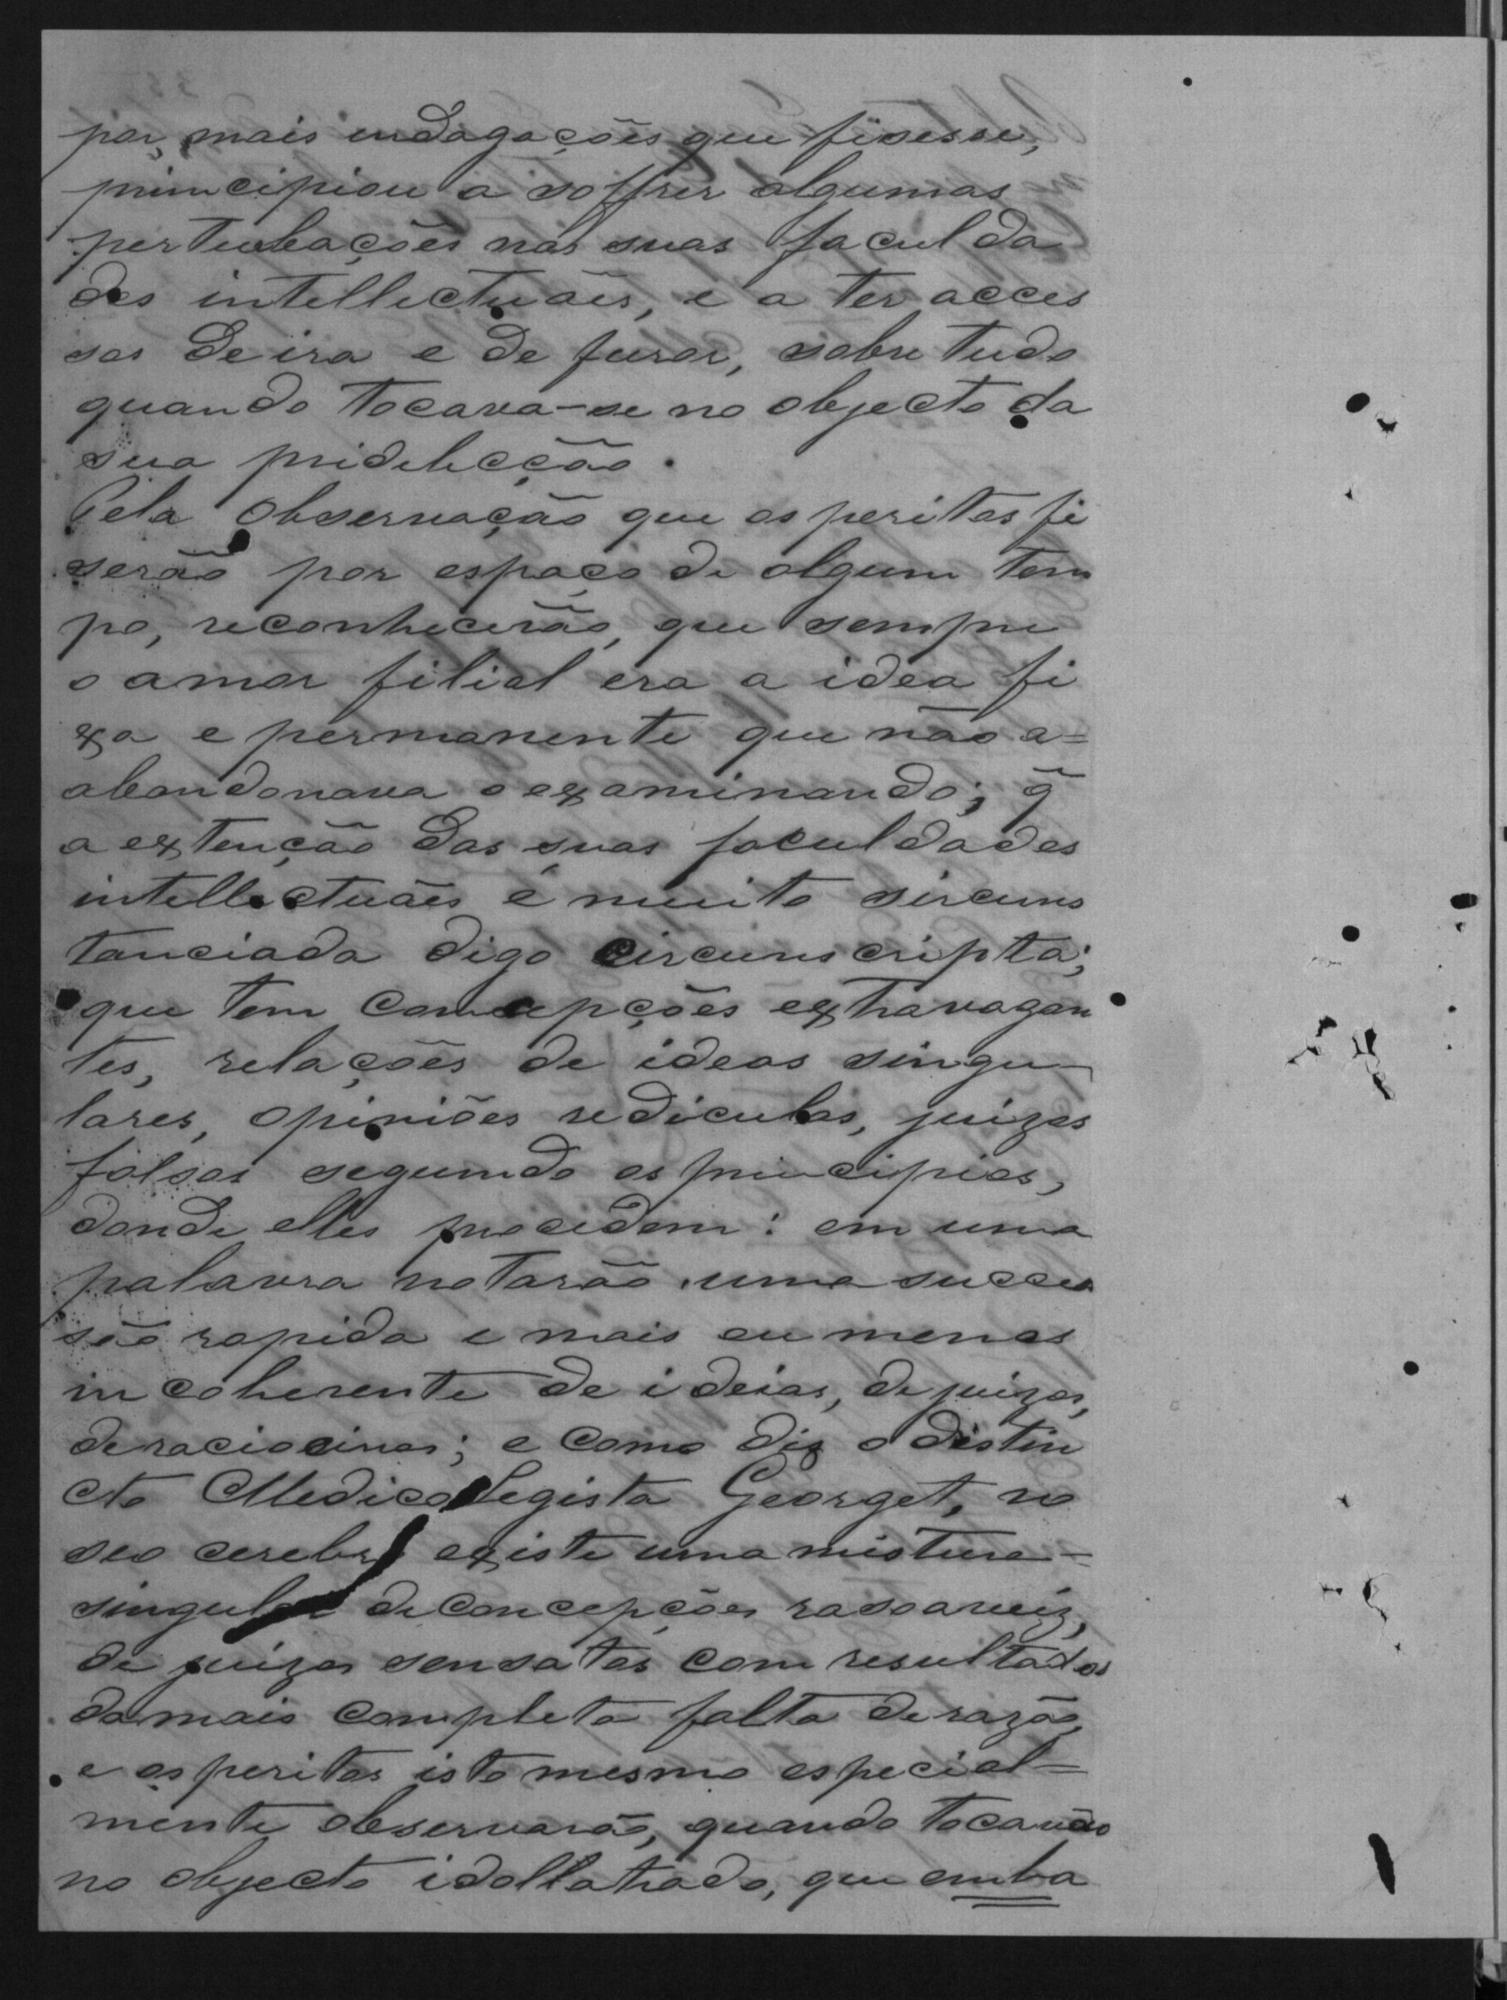 por mais indagações que fisesse,
principiou a soffrer algumas
pertubações nas suas faculda
des intellectuaẽs, e a ter acces
sos de ira e de furor, sobre tudo
quando tocava-se no objecto da
sua pridelecção.
Pela observação que os peritos fi
serão por espaço de algum tem
po, reconhecerão, que sempre
o amor filial era a idea fi
xa e permanente que não a=
abandonava o examinando; q̃
a extenção das suas faculdades
intellectuães é muito sircuns
tanciada digo circumscripta;
que tem concepções extravagan
tes, relações de ideas singu-
lares, opiniões rediculas, juizos
falsos segundo os principios,
donde elles procedem: em uma
palavra notarão uma succes
são rapida e mais ou menos
incoherente de ideias, de juizos,
de raciocinos; e como diz o distin
cto Medico Legista Georget, no
seo cerebro existe uma mistura=
singular de concepções rasoaveiz,
de juizos sensatos com resultados
da mais completa falta de razão,
e os peritos isto mesmo especial=
mente observarão, quando tocavão
no objecto idollatrado, que emba